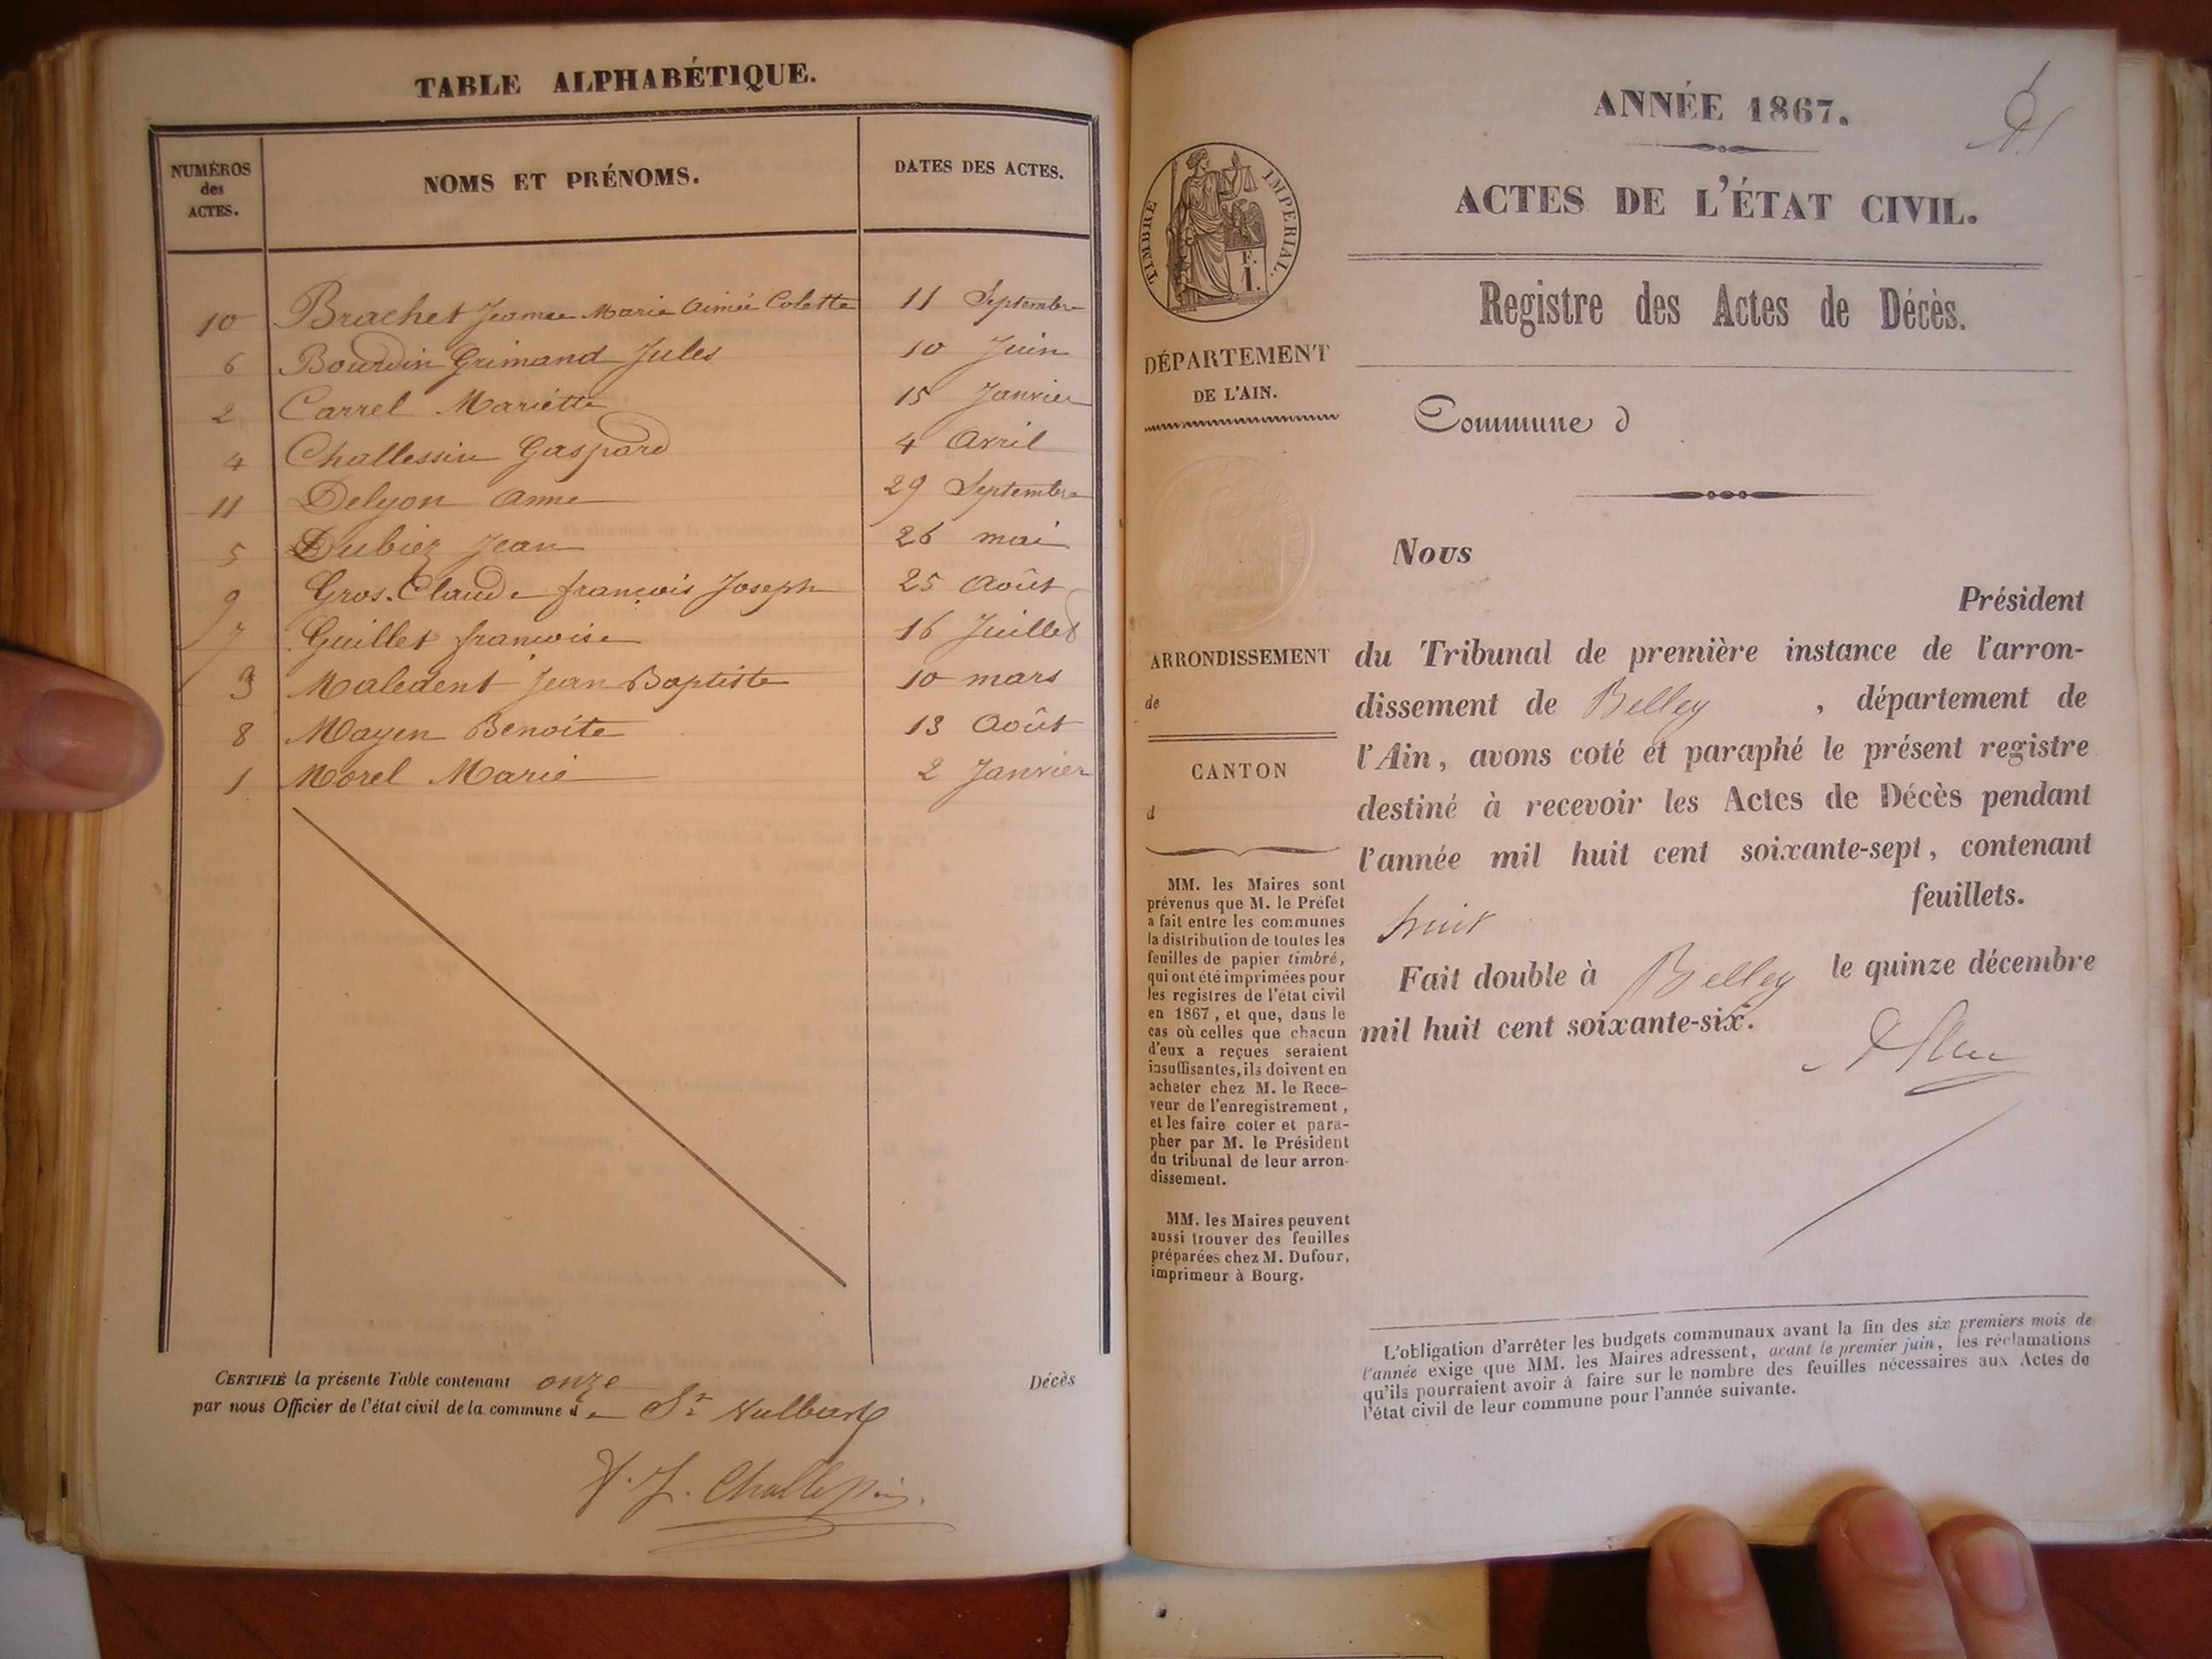 TABLE ALPHABÉTIQUE.
NUMÉROS des ACTES.
NOMS ET PRÉNOMS.
DATES DES ACTES.
10 Brachet Jeanne Marie Aimée Colette 11 Septembre
6 Bourdin Grimand Jules 10 Juin
2 Carrel Mariette 15 Janvier
4 Challessin Gaspard 4 Avril
11 Delyon Anne 29 Septembre
5 Dubiez Jean 26 mai
9 Gros-Claude françois Joseph 25 Août
7 Guillet françoise 16 Juillet
3 Maledent Jean Baptiste 10 mars
8 Mayen Benoite 13 Août
1 Morel Marie 2 Janvier
CERTIFIÉ la présente Table contenant onze Décès
par nous Officier de l'état civil de la commune de St Vulbas
J. Challessin.
ANNÉE 1867.
ACTES DE L'ÉTAT CIVIL.
Registre des Actes de Décès.
TIMBRE IMPERIAL.
F.
1.
DÉPARTEMENT
DE L'AIN.
ARRONDISSEMENT
de
CANTON
d
MM. les Maires sont
prévenus que M. le Préfet
a fait entre les communes
la distribution de toutes les
feuilles de papier timbré,
qui ont été imprimées pour
les registres de l'état civil
en 1867, et que, dans le
cas où celles que chacun
d'eux a reçues seraient
insuffisantes, ils doivent en
acheter chez M. le Rece-
veur de l'enregistrement,
et les faire coter et para-
pher par M. le Président
du tribunal de leur arron-
dissement.
MM. les Maires peuvent
aussi trouver des feuilles
préparées chez M. Dufour,
imprimeur à Bourg.
Commune d
Nous
Président
du Tribunal de première instance de l'arron-
dissement de Belley , département de
l'Ain, avons coté et paraphé le présent registre
destiné à recevoir les Actes de Décès pendant
l'année mil huit cent soixante-sept, contenant
huit feuillets.
Fait double à Belley le quinze décembre
mil huit cent soixante-six.
L'obligation d'arrêter les budgets communaux avant la fin des six premiers mois de
l'année exige que MM. les Maires adressent, avant le premier juin, les réclamations
qu'ils pourraient avoir à faire sur le nombre des feuilles nécessaires aux Actes de
l'état civil de leur commune pour l'année suivante.